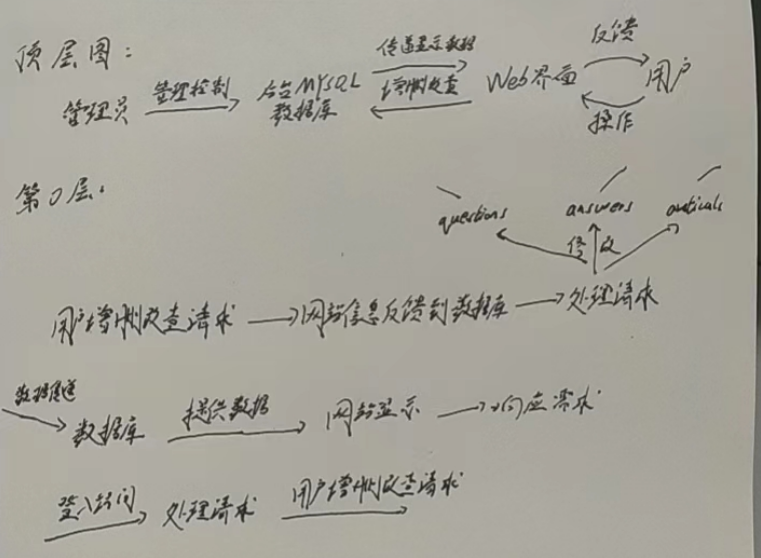 顶层图：
管理员 管理控制 后台MySQL数据库 传递显示数据 增删改查 Web界面 反馈 操作 用户
第0层：
questions answers articals
修改
用户增删改查请求 网站信息反馈到数据库 处理请求
数据库 提供数据 网站显示 响应需求
处理请求 用户增删改查请求